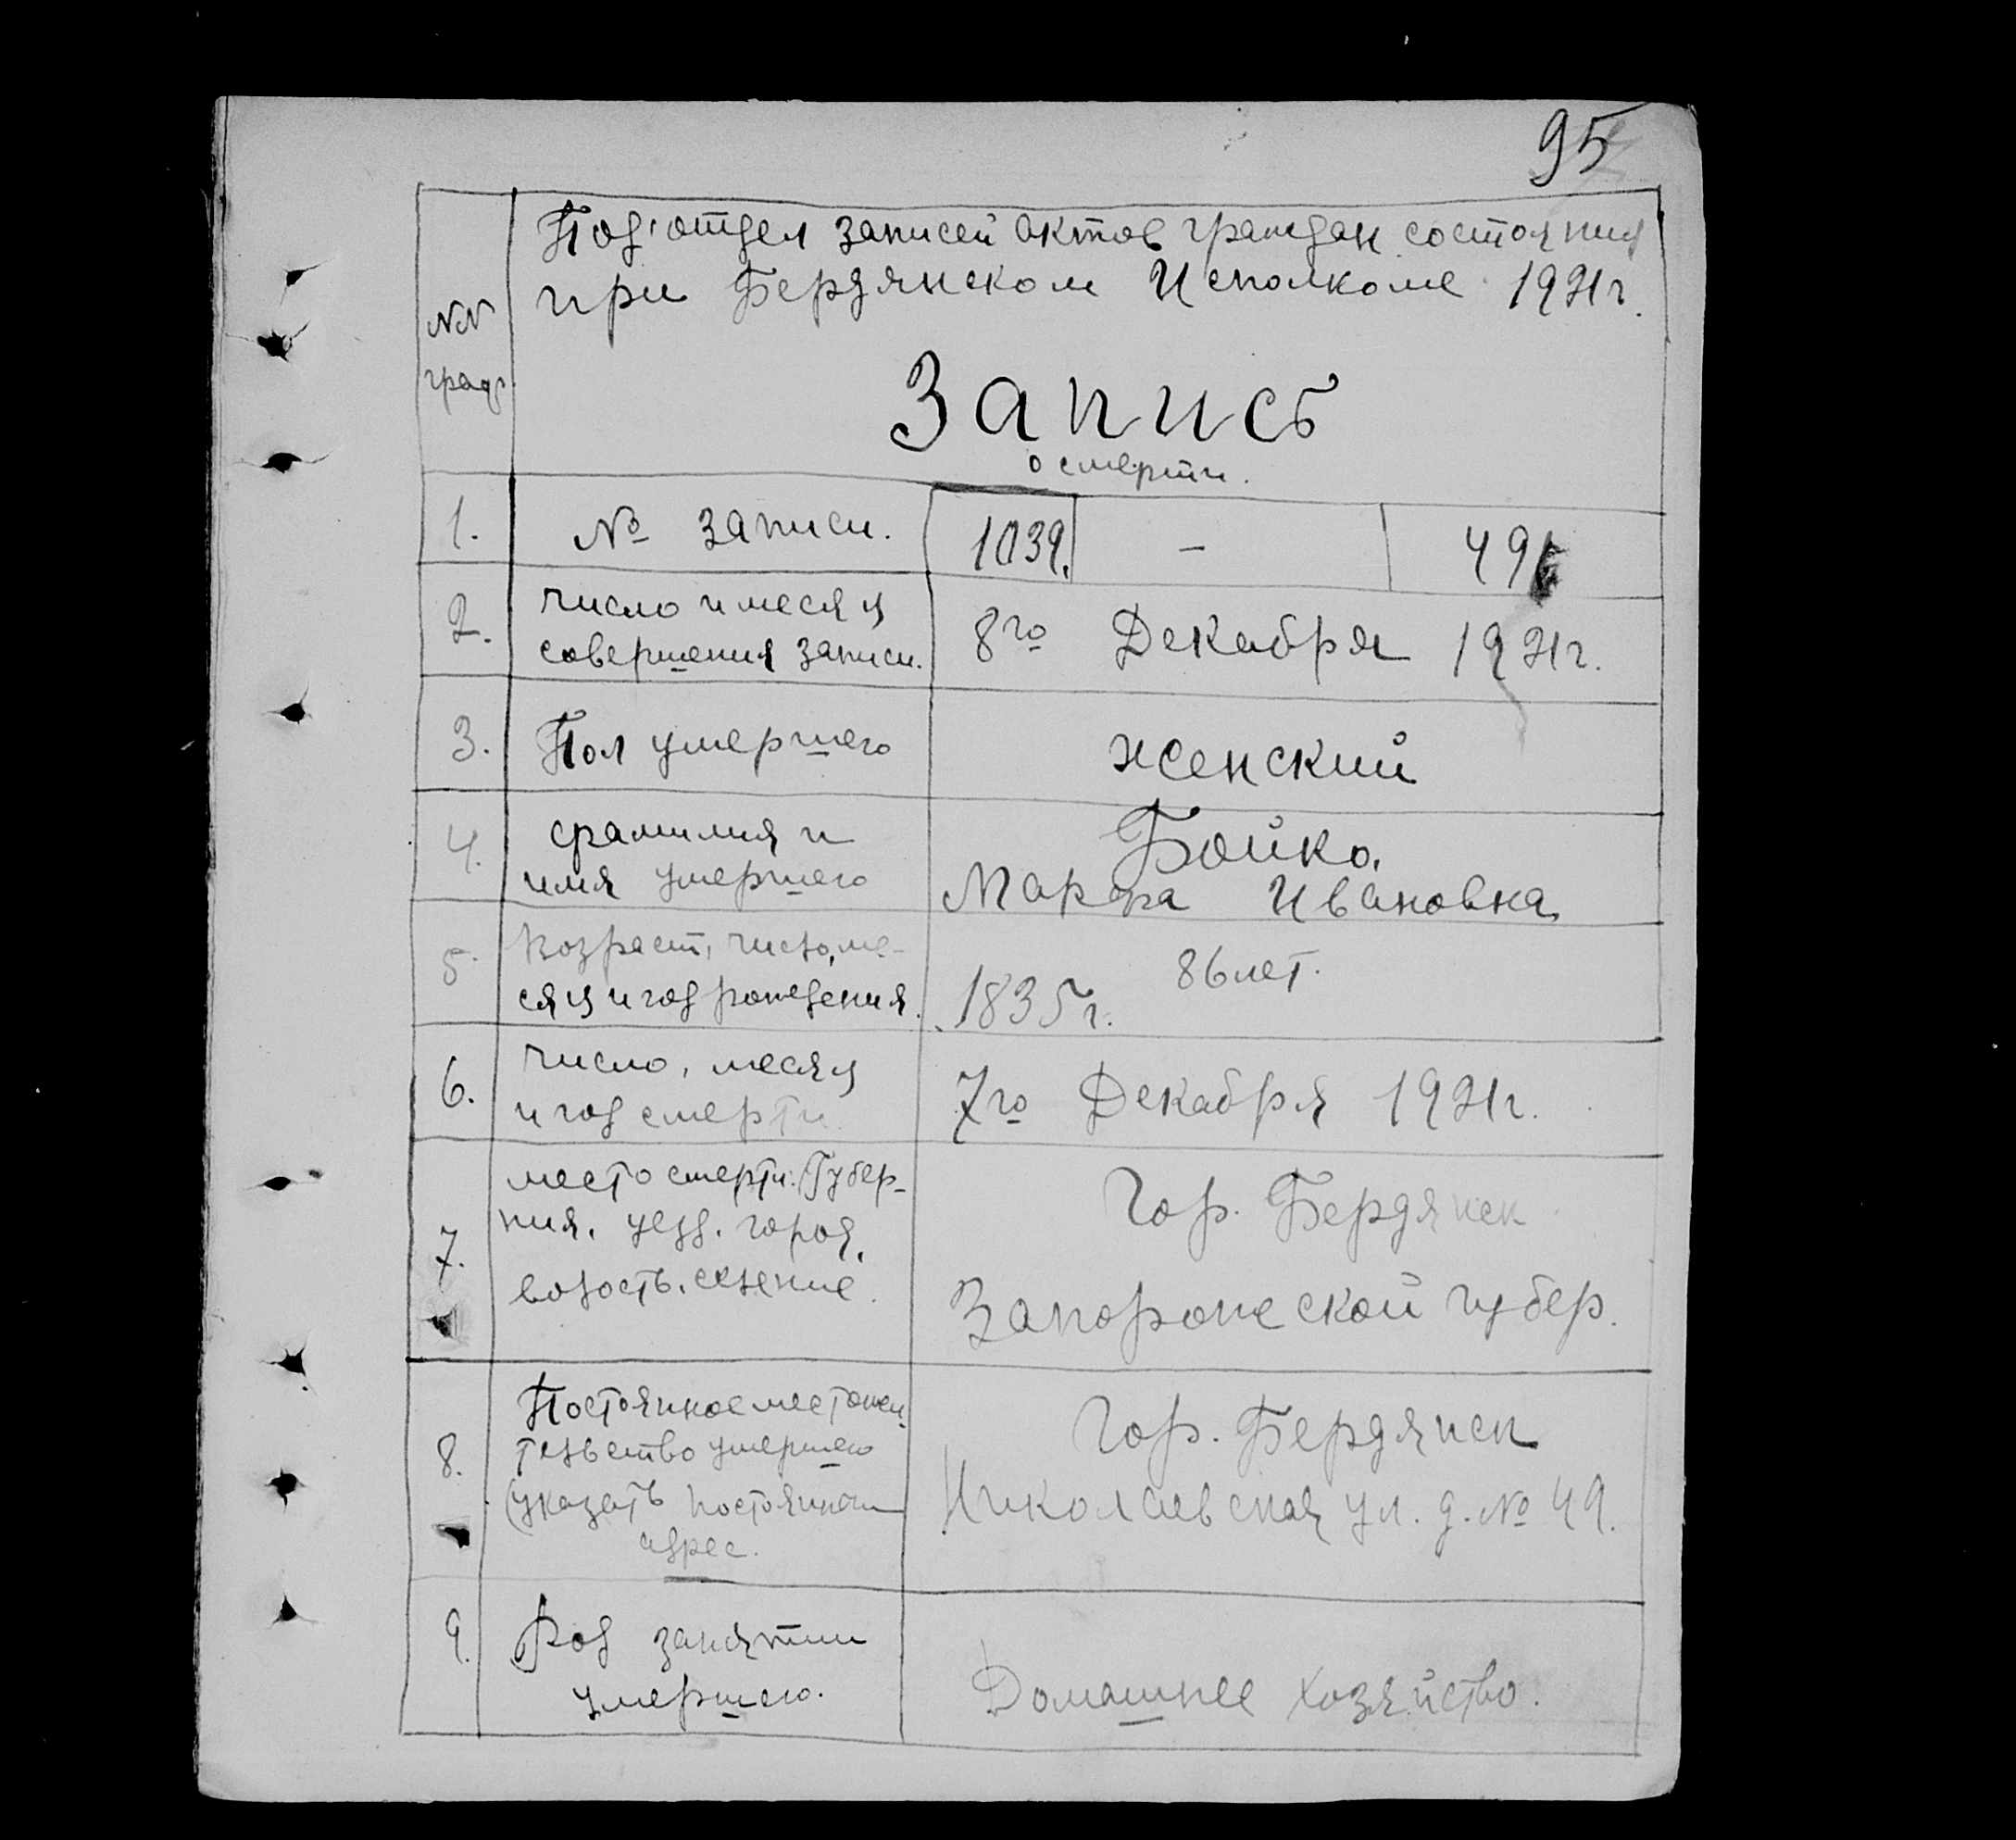 95
Под'отдел записей актов граждан. состояния
при Бердянском Исполкоме 1921г.
NN
граф.
Запись
о смерти.
1. № записи. 1039. - 49
2. число и месяц
совершения записи. 8го Декабря 1921г.
3. Пол умершего женский
4. фамилия и
имя умершего
Бойко.
Марфа Ивановна
5. Возраст, число, ме-
сяц и год рождения.
86 лет.
1835г.
6. число, месяц
и год смерти
7го Декабря 1921г.
7. место смерти. Губер-
ния. уезд. город.
волость. селение.
Гор. Бердянск
Запорожской губер.
8. Постоянное местожи-
тельство умершего
(указать постоянный
адрес.
Гор. Бердянск
Николаевская ул. д. № 49.
9. Род занятий
умершего.
Домашнее хозяйство.